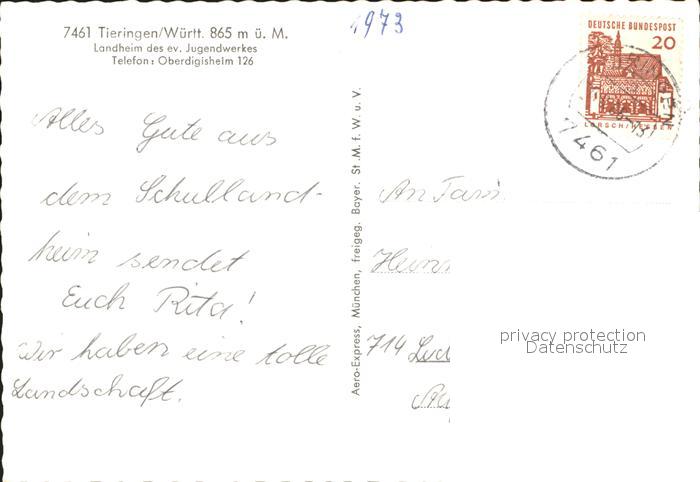 7461 Tieringen/Württ. 865 m ü. M.
Landheim des ev. Jugendwerkes
Telefon: Oberdigisheim 126
1973
DEUTSCHE BUNDESPOST
20
LORSCH/HESSEN
7461
Alles Gute aus
dem Schulland-
heim sendet
Euch Rita!
Wir haben eine tolle
Landschaft.
Aero-Express, München, freigeg. Bayer. St. M. f. W. u. V.
An Fam.
Heinr
714 Lud
privacy protection
Datenschutz